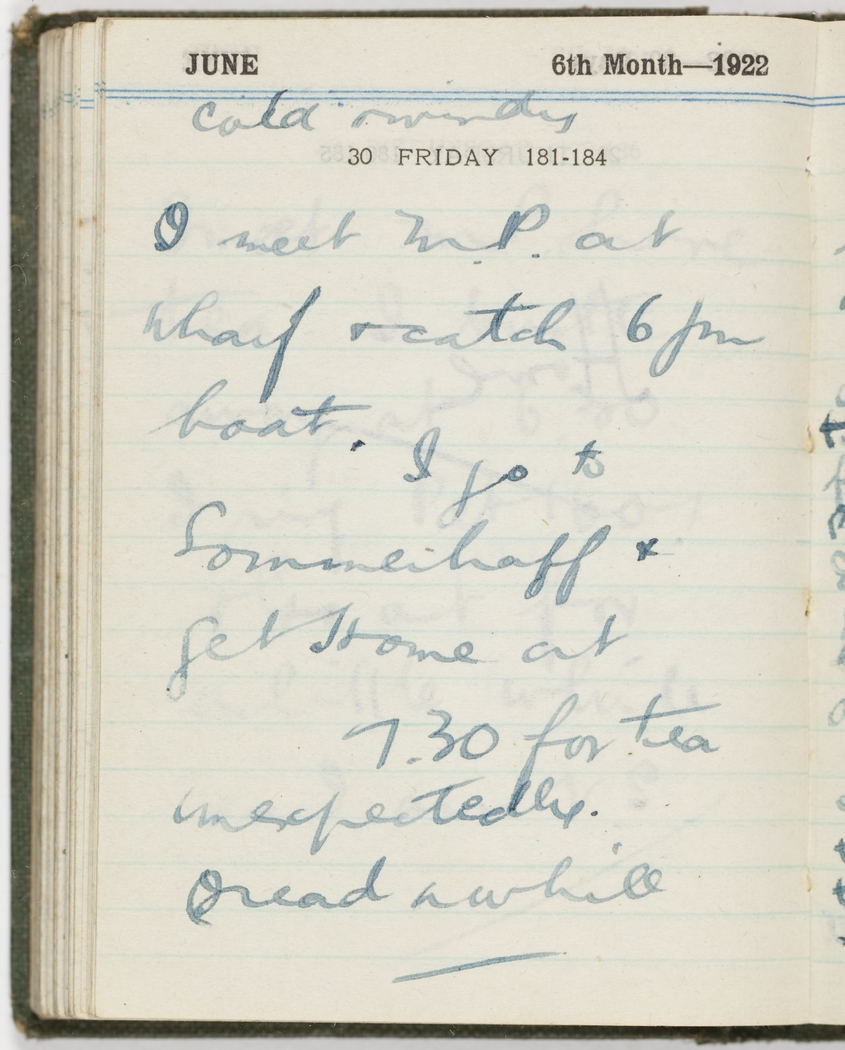 JUNE 6th Month—1922
cold & windy
30 FRIDAY 181-184
I meet M.P. at
wharf & catch 6 pm
boat. I go to
Sommerhoff &
get Home at
7.30 for tea
unexpectedly.
I read awhile